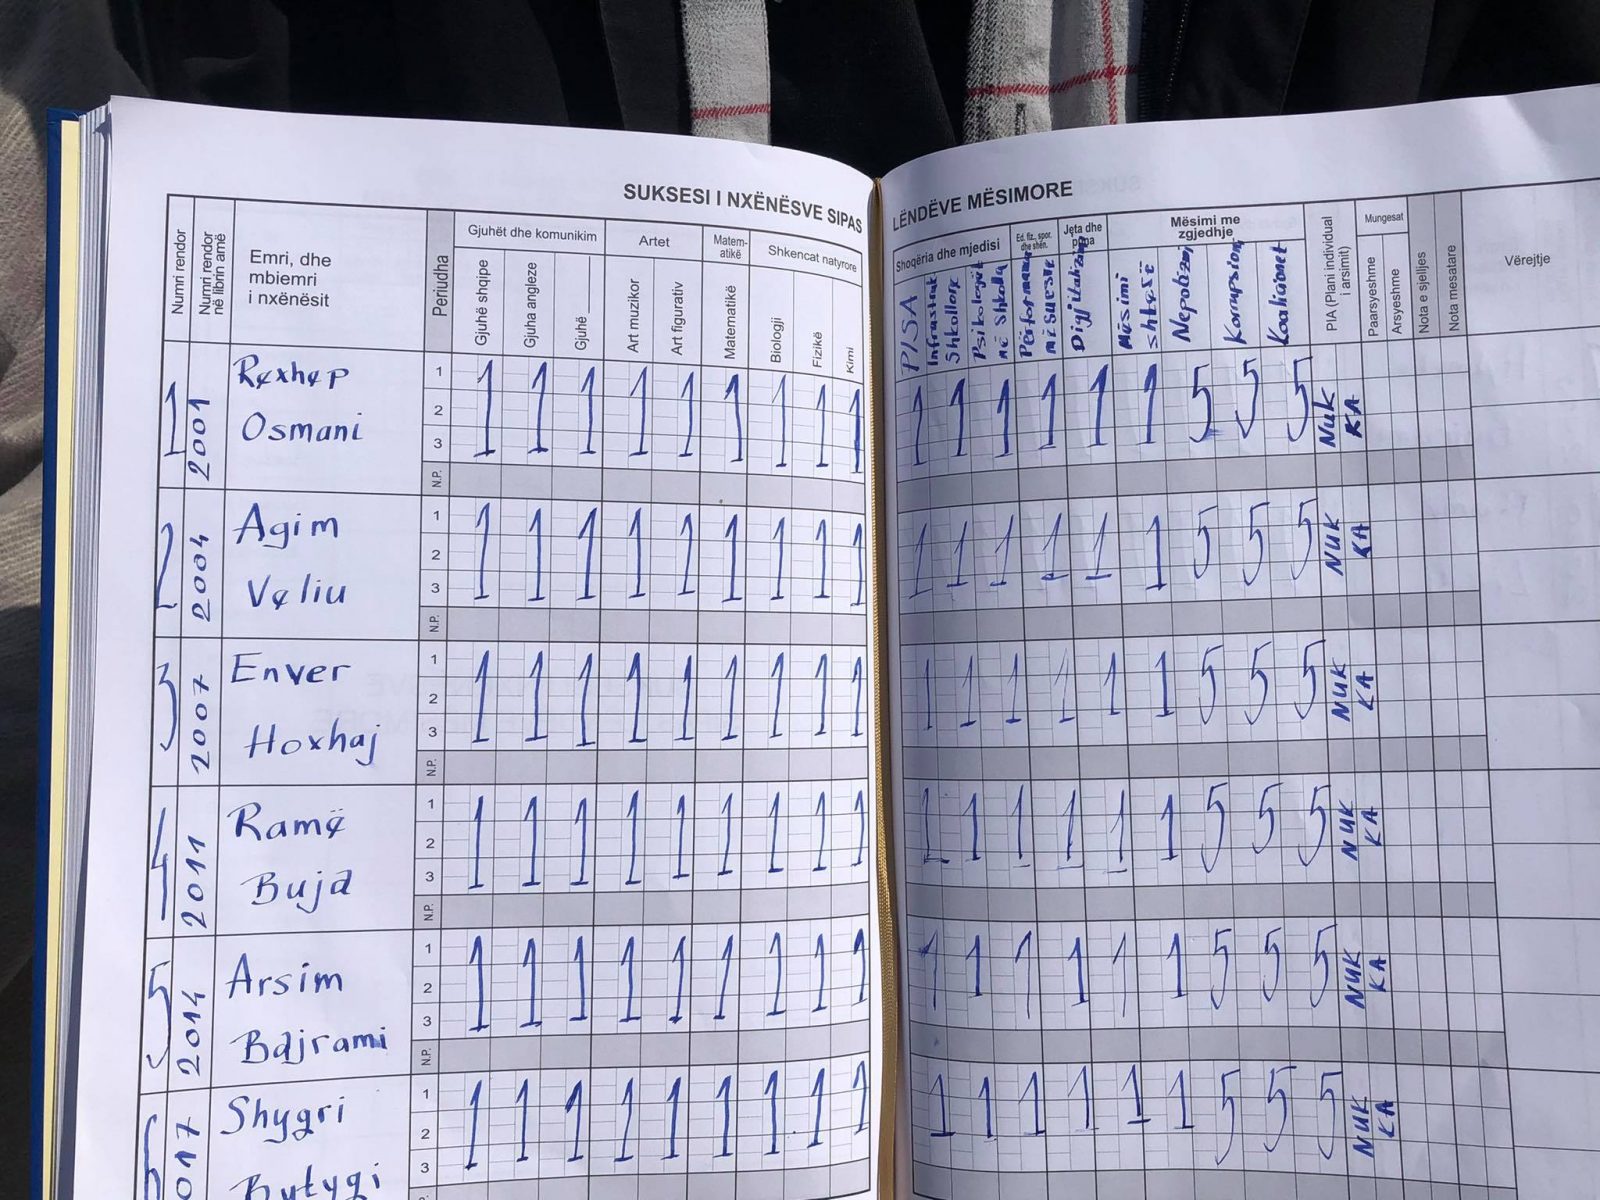 SUKSESI I NXËNËSVE SIPAS LËNDËVE MËSIMORE
Numri rendor
Numri rendor në librin amë
Emri, dhe mbiemri i nxënësit
Periudha
Gjuhët dhe komunikim
Gjuhë shqipe
Gjuha angleze
Gjuhë
Artet
Art muzikor
Art figurativ
Matematikë
Matematikë
Shkencat natyrore
Biologji
Fizikë
Kimi
Shoqëria dhe mjedisi
PISA
Infrastruk Shkollore
Psikologët në Shkolla
Ed. fiz., spor. dhe shën.
Performanca mësuesve
Jeta dhe puna
Digjitalizimi
Mësimi me zgjedhje
Mësimi shkesë
Nepotizmi
Korrupsioni
Koalicionet
PIA (Plani individual i arsimit)
Mungesat
Paarsyeshme
Arsyeshme
Nota e sjelljes
Nota mesatare
Vërejtje
1 2001 Rexhep Osmani 1 2 3 N.P. 1 1 1 1 1 1 1 1 1 1 1 1 1 1 1 5 5 5 NUK KA
2 2004 Agim Veliu 1 2 3 N.P. 1 1 1 1 1 1 1 1 1 1 1 1 1 1 1 5 5 5 NUK KA
3 2007 Enver Hoxhaj 1 2 3 N.P. 1 1 1 1 1 1 1 1 1 1 1 1 1 1 1 5 5 5 NUK KA
4 2011 Ramë Buja 1 2 3 N.P. 1 1 1 1 1 1 1 1 1 1 1 1 1 1 1 5 5 5 NUK KA
5 2014 Arsim Bajrami 1 2 3 N.P. 1 1 1 1 1 1 1 1 1 1 1 1 1 1 1 5 5 5 NUK KA
6 017 Shyqri Bytyqi 1 2 3 1 1 1 1 1 1 1 1 1 1 1 1 1 1 1 5 5 5 NUK KA